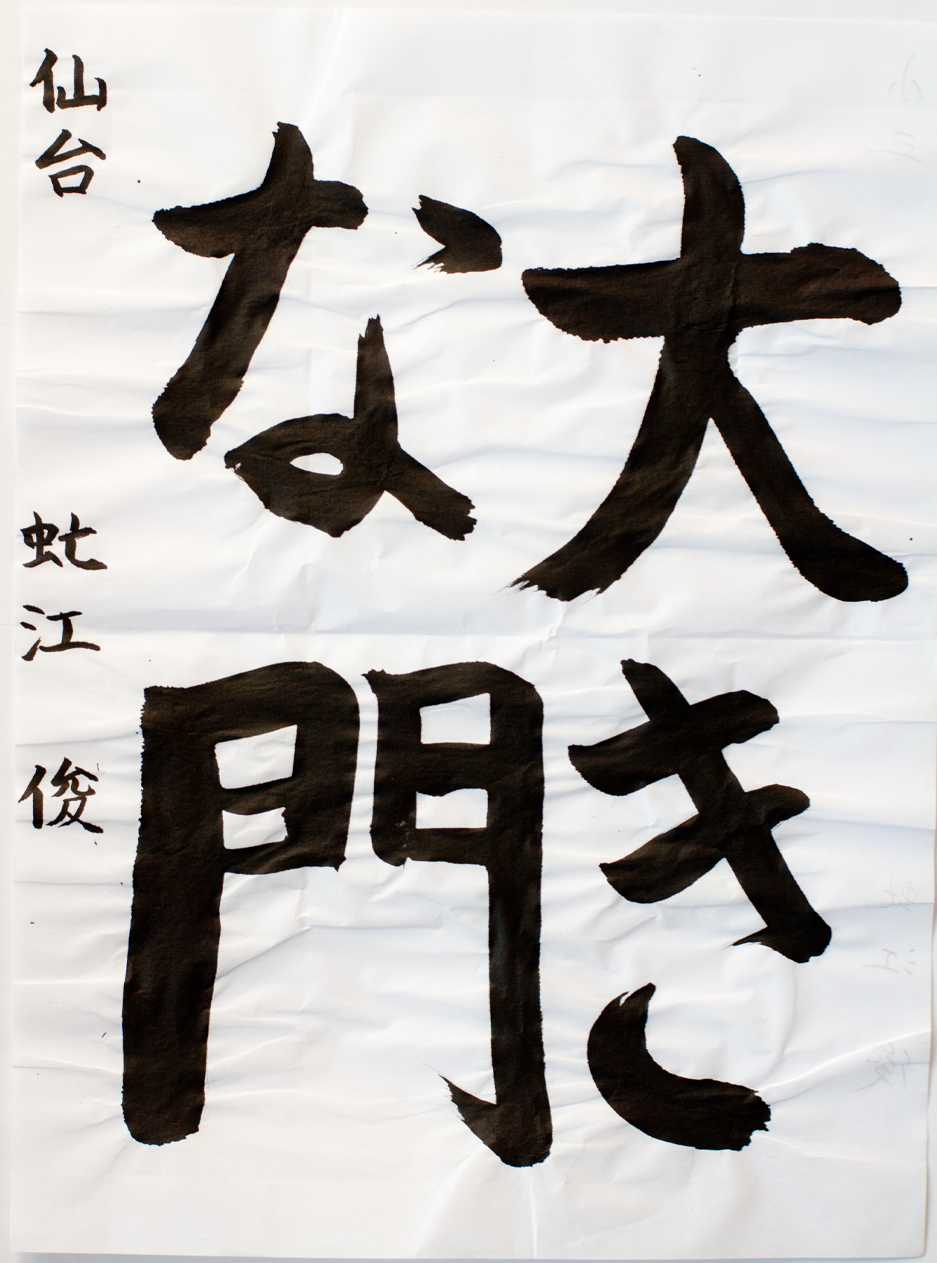 大き
な門
仙台 虻江 俊